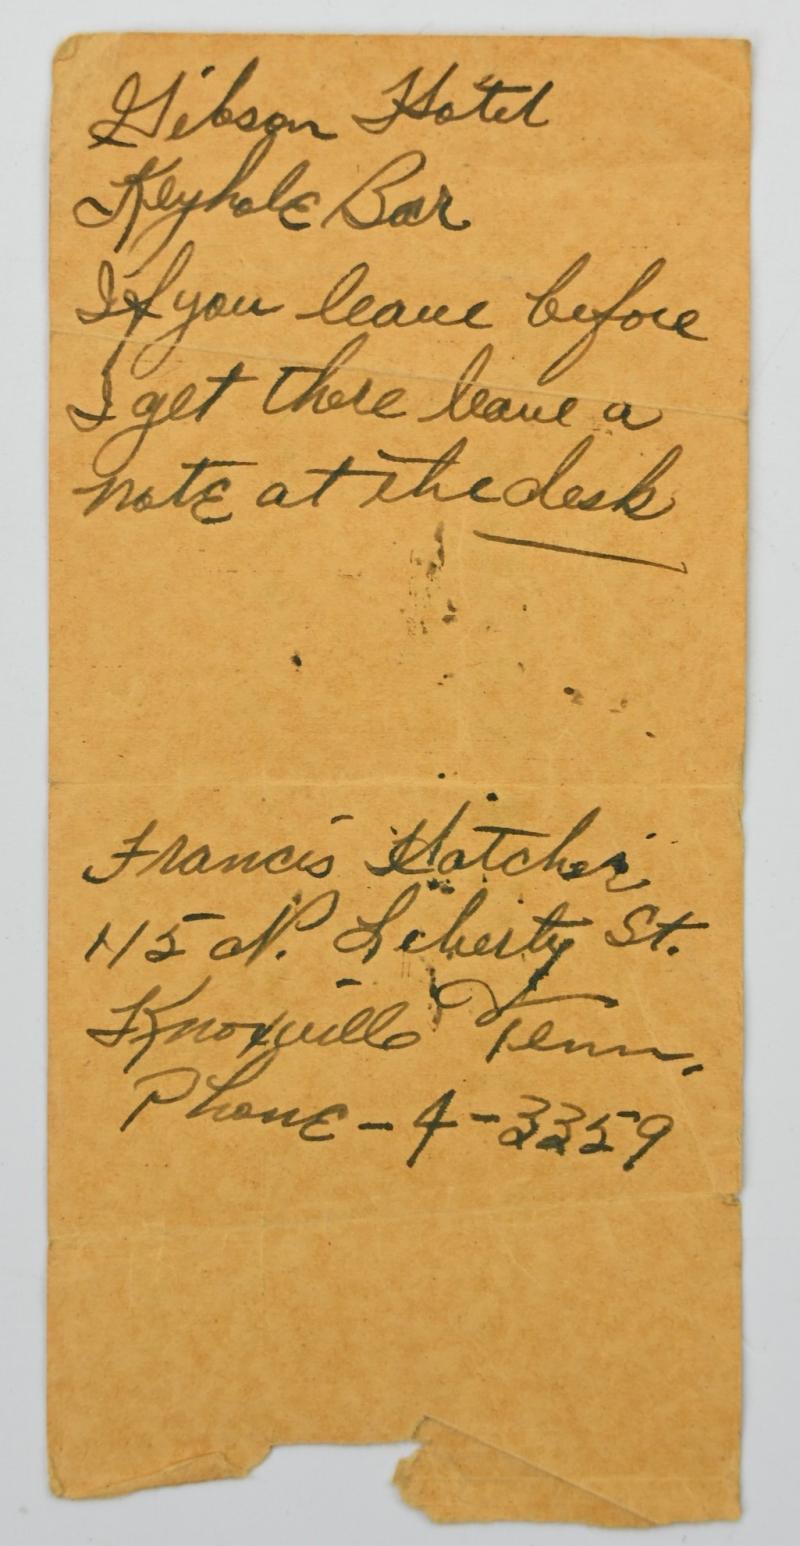 Gibson Hotel
Keyhole Bar
If you leave before
I get there leave a
note at the desk
Francis Hatcher
115 N. Liberty St.
Knoxville Tenn.
Phone - 4-3359